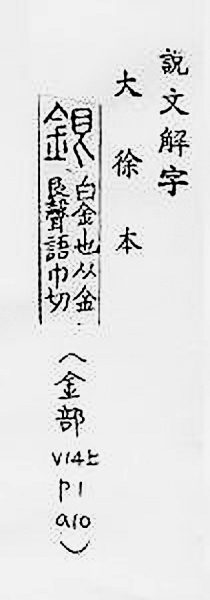 說文解字
大徐本
銀 白金也从金
㫐聲語巾切
(金部
V14上
P1
a10)